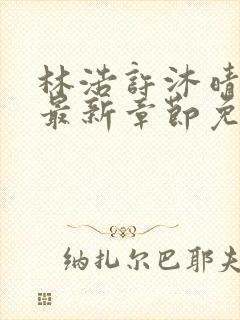 林浩許沐晴
最新章節免
纳扎尔巴耶夫